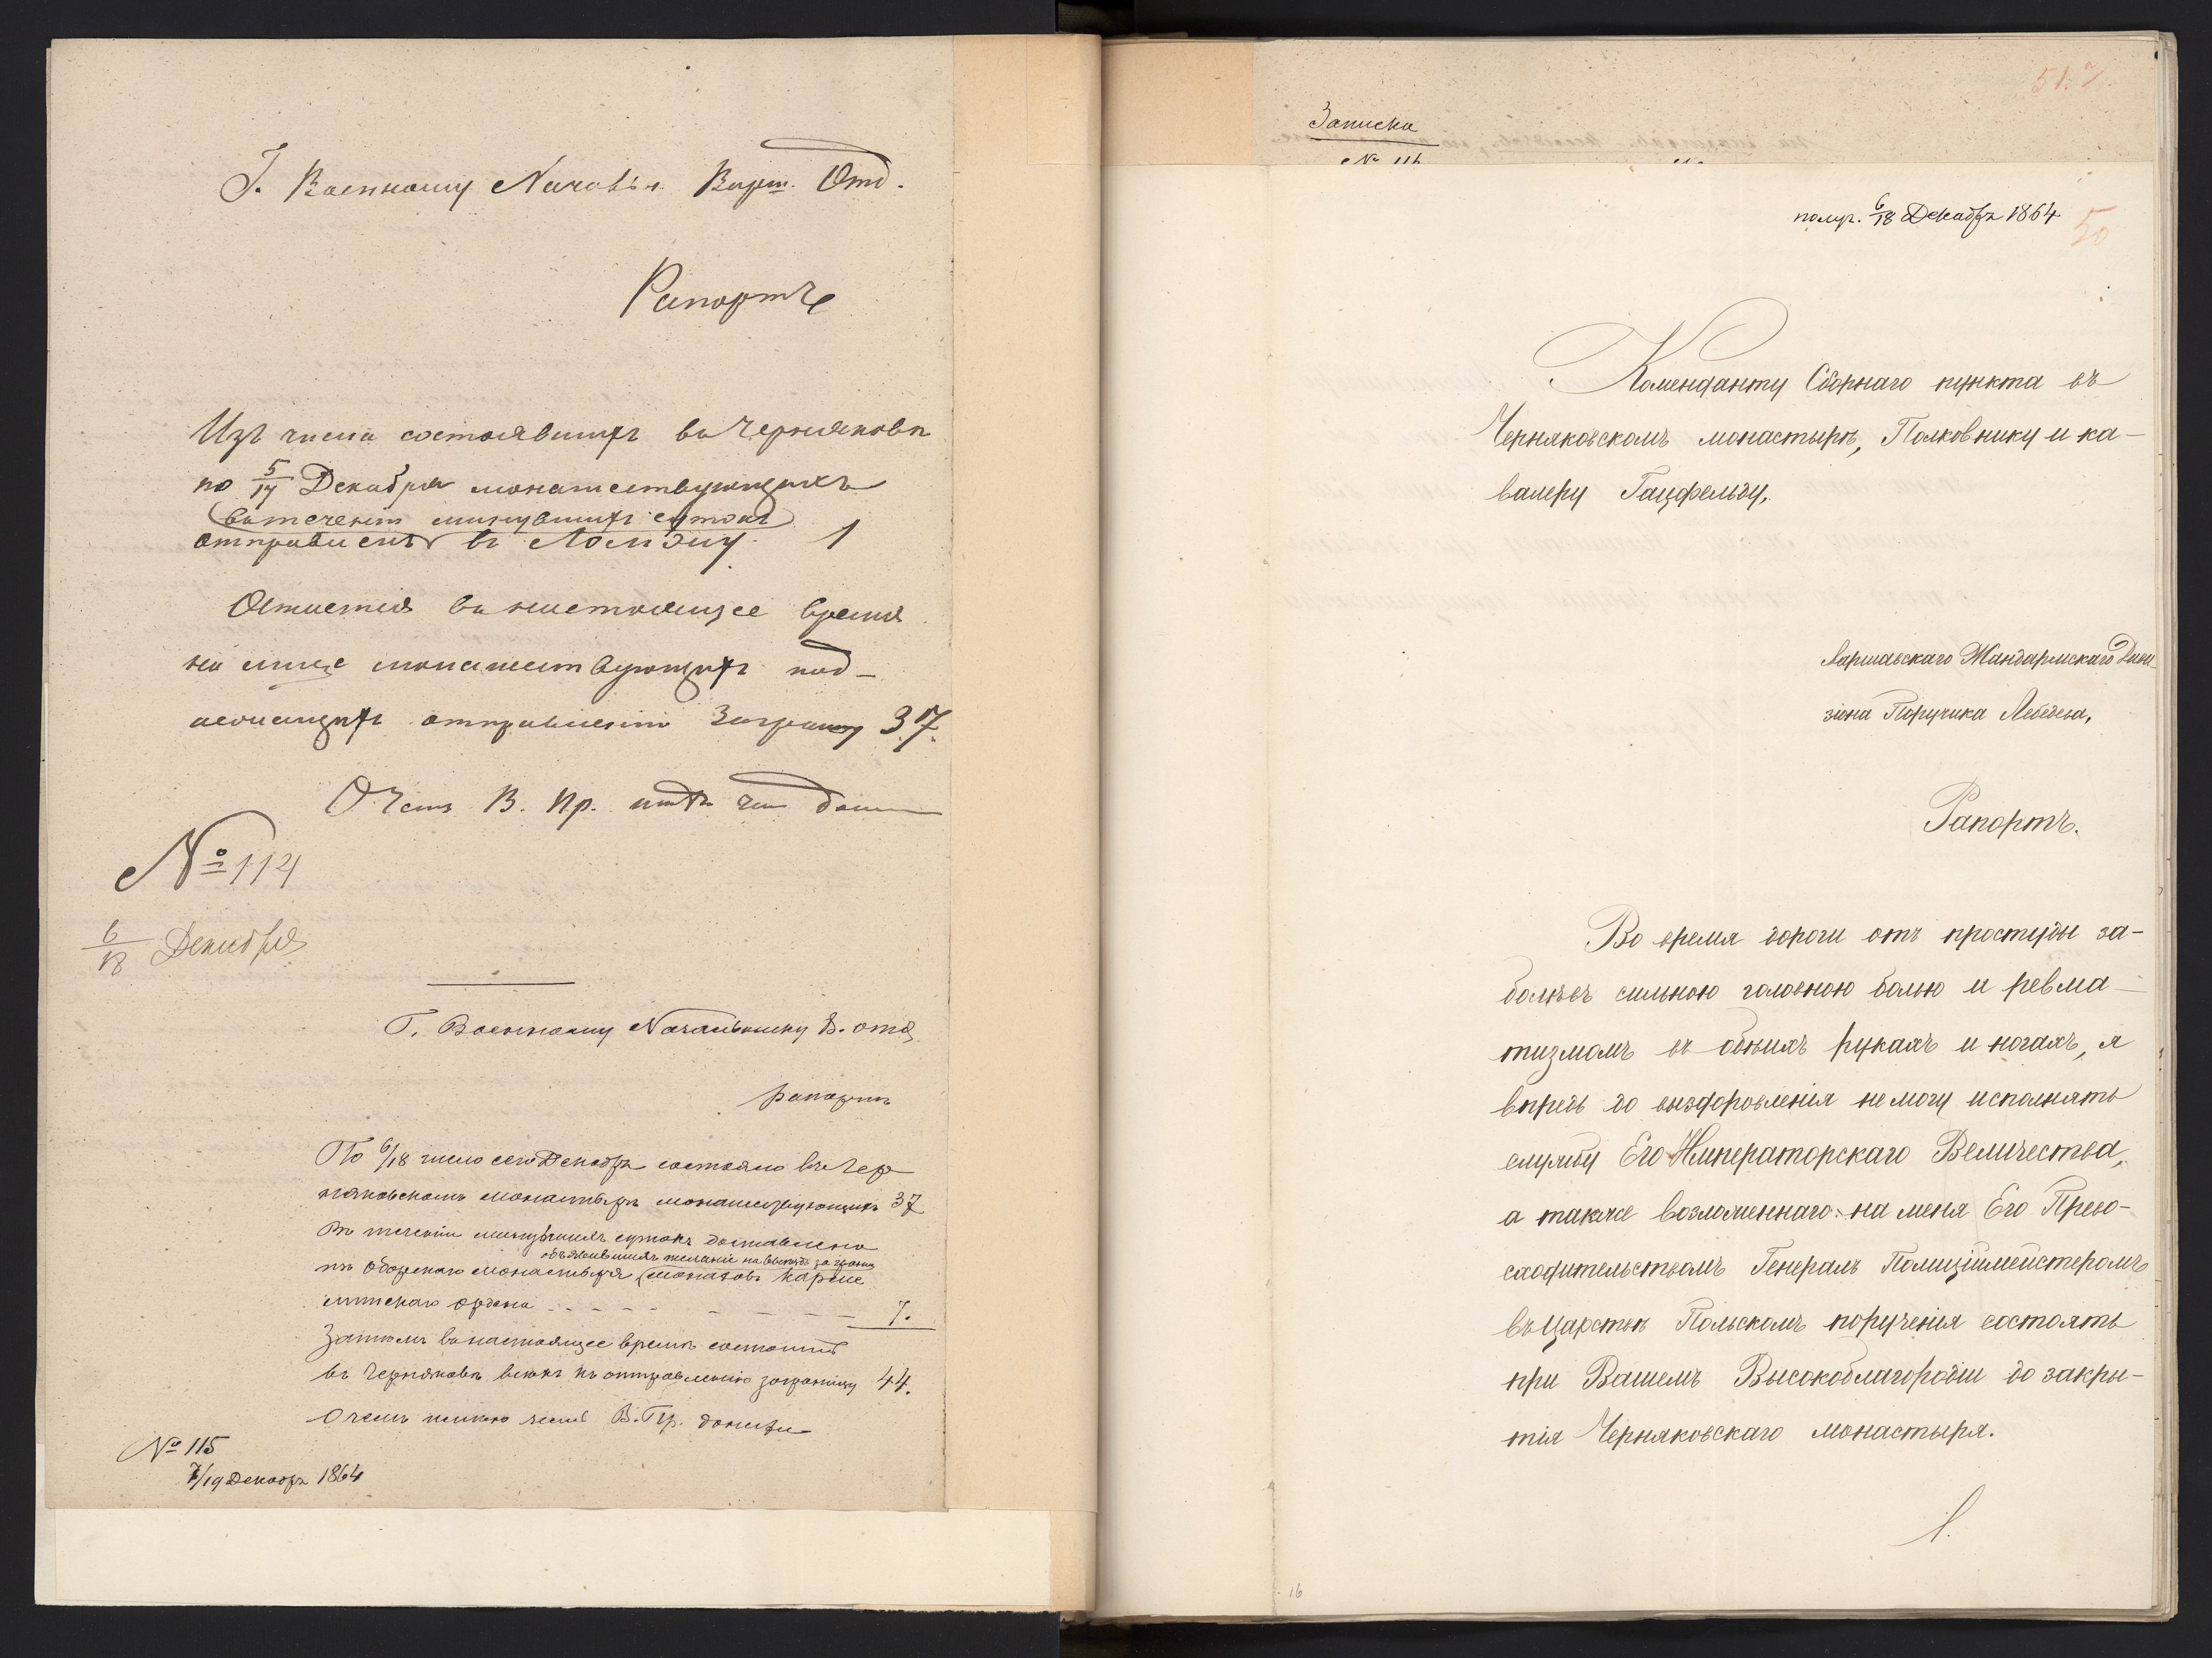 Г. Военному Начальн. Варш. Отд.
Рапортъ
Изъ числа состоявшихъ въ Черняковѣ
по 5/17 Декабря монашествующихъ
въ теченіи минувшихъ сутокъ
отправленъ въ Ломзу. 1
Остается въ настоящее время
на лице монашествующихъ под-
лежащихъ отправленію заграницу 37.
О чемъ В. Пр. имѣю честь
№ 114
6/18 Декабря
Г. Военному Начальнику В. отд.
рапортъ
По 6/18 число сего Декабря состояло въ Чер
няковскомъ монастырѣ монашествующихъ 37
Въ теченіи минувшихъ сутокъ доставлено
объявившихъ желаніе на выѣздъ за границу
изъ Оборскаго монастыря монаховъ Карме
литскаго ордена - - - - - - - 7.
Затѣмъ въ настоящее время состоитъ
въ Черняковѣ всѣхъ къ отправленію заграницу 44.
О чемъ имѣю честь В. Пр. донести
№ 115
7/19 Декабря 1864
51.
Записка
№ 116
получ. 6/18 Декабря 1864
50
Коменданту Сборнаго пункта въ
Черняковскомъ монастырѣ, Полковнику и ка-
валеру Гацфельду,
Варшавскаго Жандармскаго Диви-
зіона Поручика Лебедева,
Рапортъ.
Во время дороги отъ простуды за-
болѣвъ сильною головною болью и ревма-
тизмомъ въ обѣихъ рукахъ и ногахъ, я
впредь до выздоровленія не могу исполнять
службу Его Императорскаго Величества,
а также возложеннаго на меня Его Прево-
сходительствомъ Генералъ Полиціймейстеромъ
въ Царствѣ Польскомъ порученія состоять
при Вашемъ Высокоблагородіи до закры-
тія Черняковскаго монастыря.
16